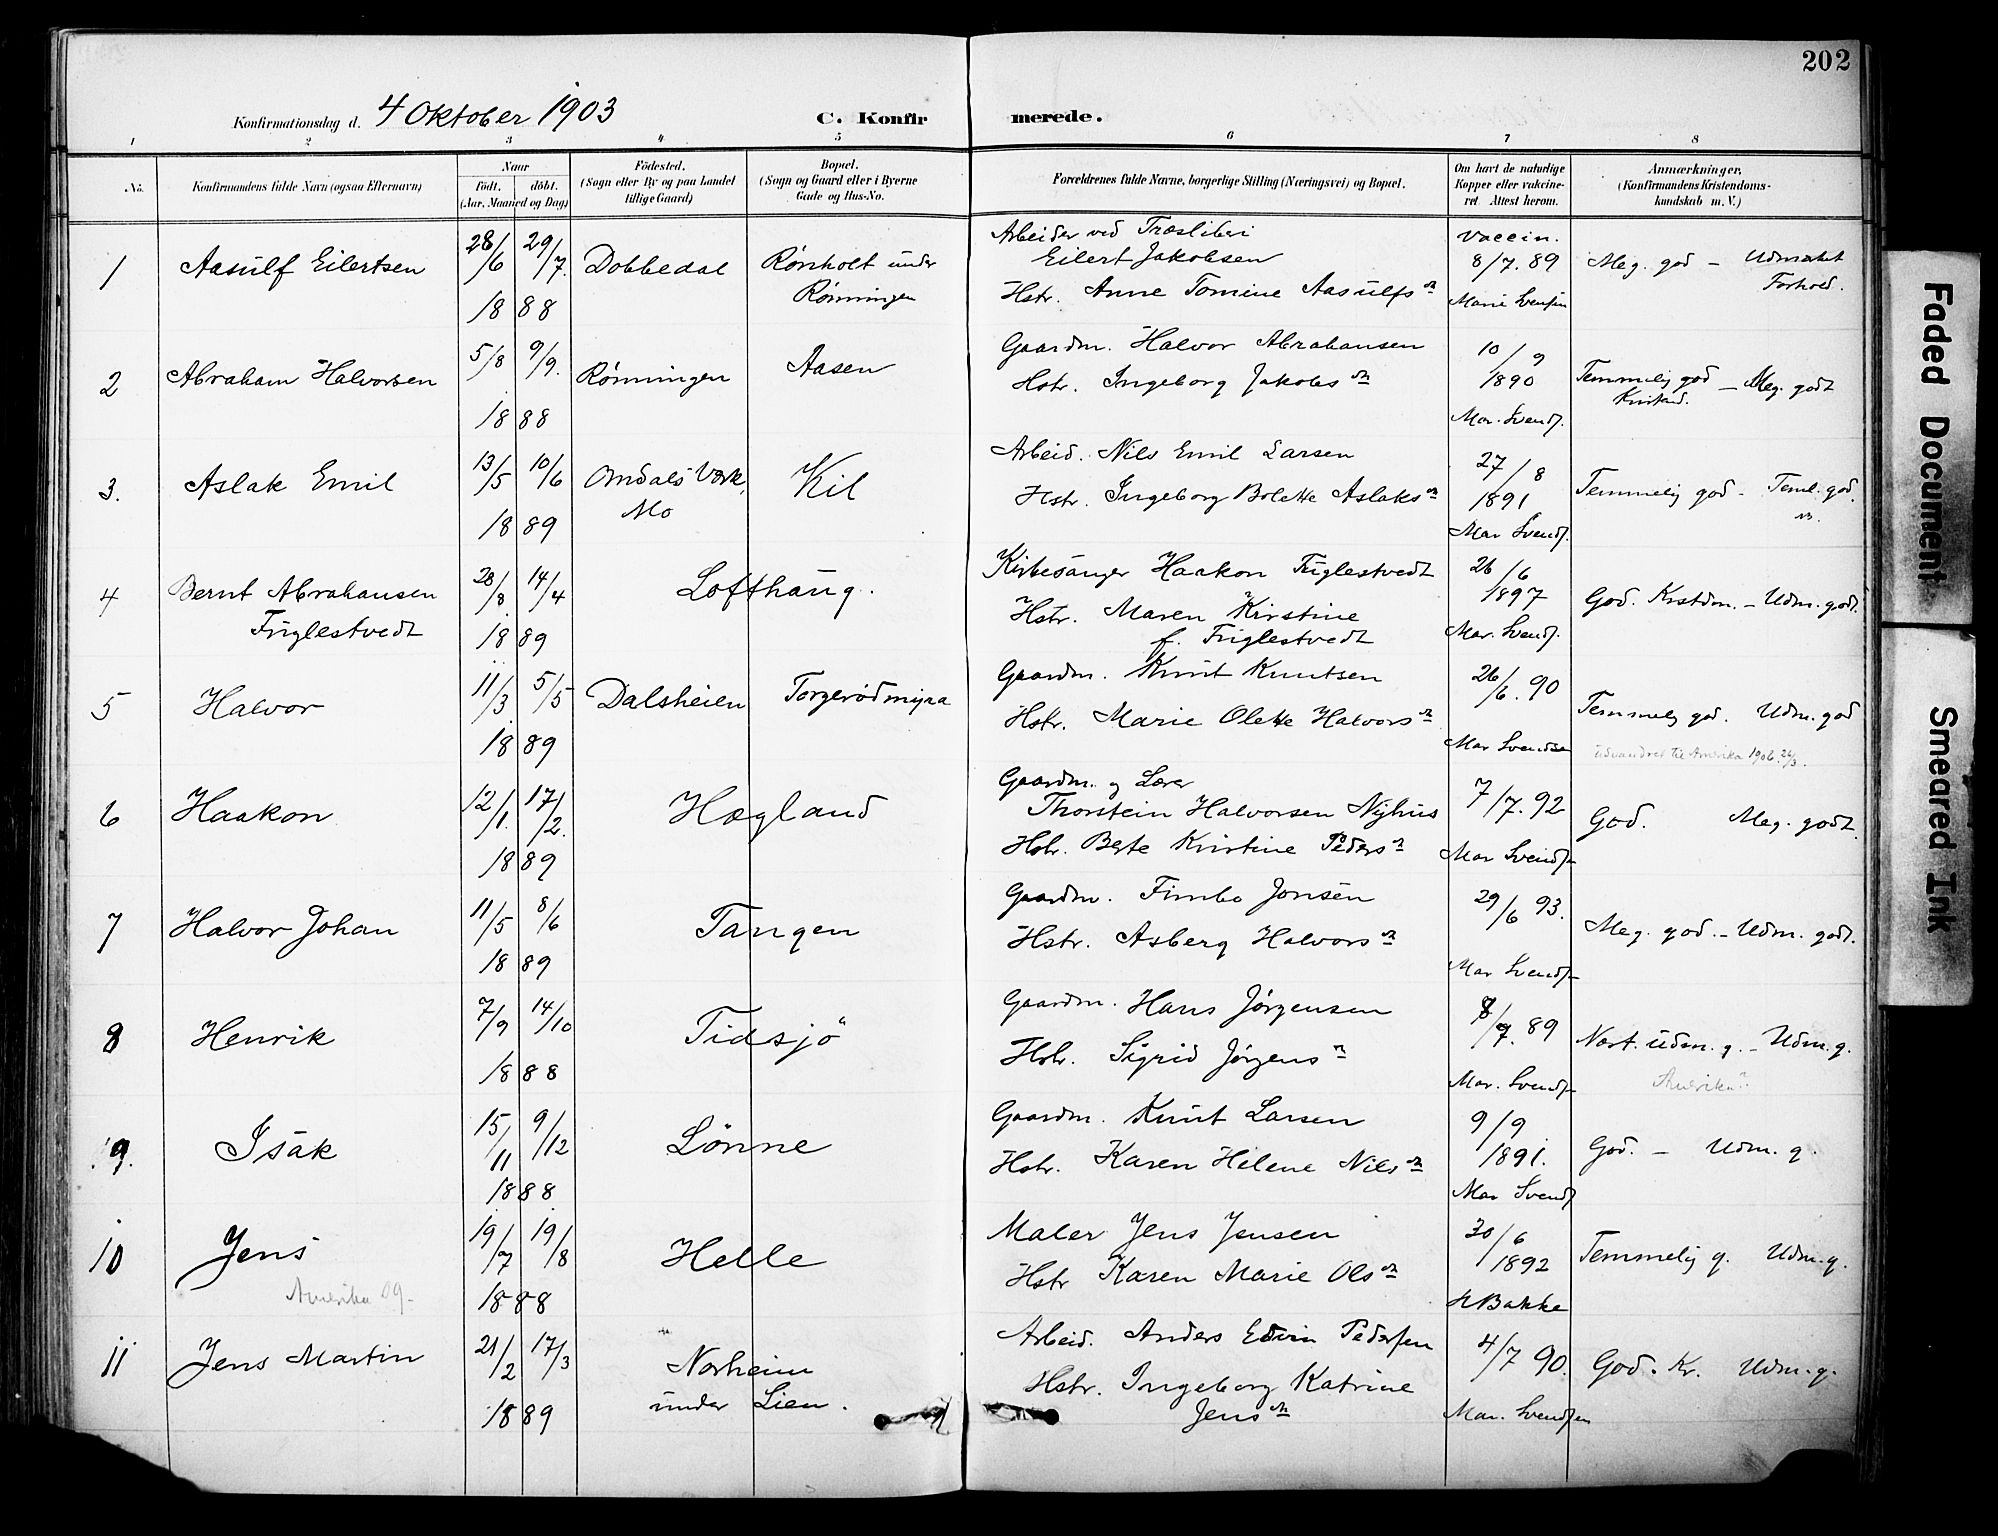 202
Konfirmationsdag d. 4 Oktober 1903
C. Konfirmerede.
1 2 3 4 5 6 7 8
No.
Konfirmandens fulde Navn (ogsaa Efternavn)
Naar
født. døbt.
(Aar, Maaned og Dag)
Fødested.
(Sogn eller By og paa Landet
tillige Gaard)
Bopæl.
(Sogn og Gaard eller i Byerne
Gade og Hus-No.
Forældrenes fulde Navne, borgerlige Stilling (Næringsvei) og Bopæl.
Om havt de naturlige
Kopper eller vakcine-
ret. Attest herom.
Anmærkninger.
(Konfirmandens Kristendoms-
kundskab m. V.)
1
Aasulf Eilertsen
28/6 29/7.
1888
Dobbedal
Rønholt under
Rønningen
Arbeider ved Træsliberi
Eilert Jakobsen
Hstr. Anne Tomine Aasulfs dt
Vaccin.
8/7. 89
Marie Svensen
Meg. god — Udmærket
Forhold.
2
Abraham Halvorsen
5/8 9/9.
1888
Rønningen
Aasen
Gaardm. Halvor Abrahamsen
Hstr. Ingeborg Jakobs dt
10/9
1890
Mar. Svends.
Temmelig god — Meg. godt
Kristend.
3.
Aslak Emil
13/5 10/6
1889
Omdals Værk,
Mo
Kil
Arbeid. Nils Emil Larsen
Hstr. Ingeborg Bolette Aslaks dt
27/8
1891
Mar Svends.
Temmelig god - Teml. god.
4
Bernt Abrahamsen
Fuglestvedt
28/8. 14/4
1889
Lofthaug.
Kirkesanger Haakon Fuglestvedt
Hstr. Maren Kirstine
f. Fuglestvedt
26/6
1897
Mar. Svends.
God. Krstdm. - Udm. godt.
5
Halvor
11/3 5/5
1889
Dalsheien
Torgerødmyra
Gaardm. Knut Knutsen
Hstr. Marie Olette Halvors dt
26/6. 90
Mar Svendsen
Temmelig god. Udm. god
Udvandret til Amerika 1906. 24/3.
6
Haakon
12/1. 17/2.
1889
Hægland
Gaardm. og Lærer
Thorstein Halvorsen Nyhus
Hstr. Berte Kristine Peders dt
7/7. 92
Mar Svendsen
God. Meg. godt.
7
Halvor Johan
11/5 8/6
1889
Tangen
Gaardm. Fimbo Jonsen
Hstr. Asberg Halvors dt
29/6 93.
Mar Svendsen
Meg. god. - Udm. godt.
8
Henrik
7/9 14/10
1888
Tidsjø
Gaardm. Hans Jørgensen
Hstr. Sigrid Jørgens dt
8/7. 89
Mar. Svends.
Næst. udm. g. - Udm. g.
Amerika
9.
Isak
15/11 9/12
1888
Lønne
Gaardm. Knut Larsen
Hstr. Karen Helene Nils dt
9/9
1891.
Mar Svends
God. — Udm. g.
10
Jens
Amerika 09-
19/7 19/8
1888
Helle
Maler Jens Jensen
Hstr Karen Marie Ols dt
30/6
1892
H Bakke
Temmelig g. Udm. g.
11
Jens Martin
21/2 17/3
1889
Norheim
under Lien.
Arbeid. Anders Edvin Pedersen
Hstr. Ingeborg Katrine
Jens dt
4/7 90.
Mar. Svendsen
God. Kr. Udm. g.
Faded Document
Smeared Ink